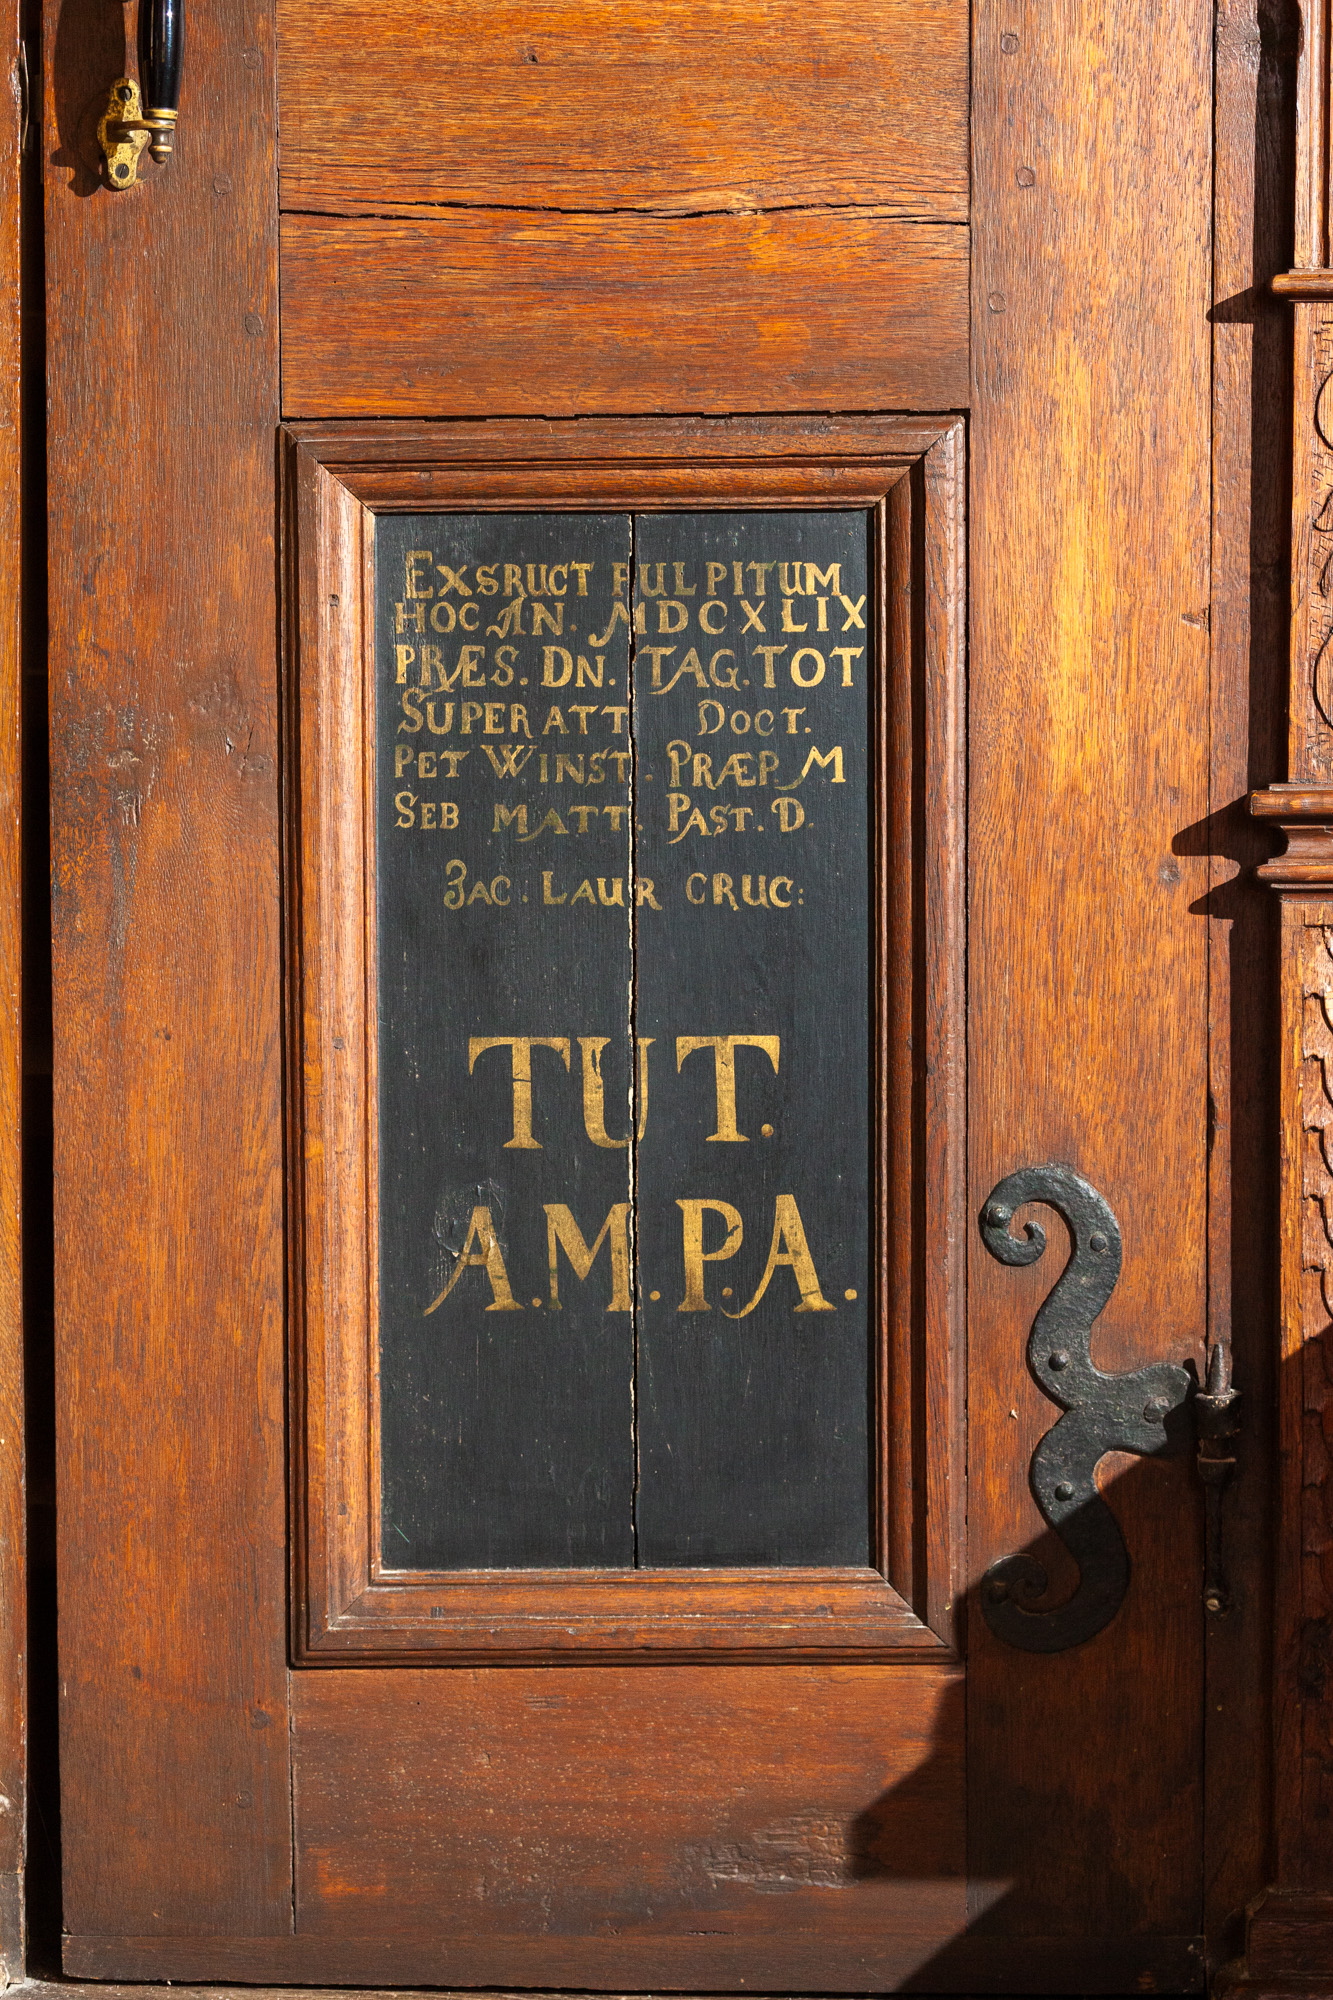 EXSRUCT PULPITUM
HOC AN. MDCXLIX
PRÆS. DN. TAG. TOT
SUPERATT DOCT.
PET WINST. PRÆP M
SEB MATT. PAST. D.
ZAC. LAUR CRUC:
TUT.
A.M.P.A.